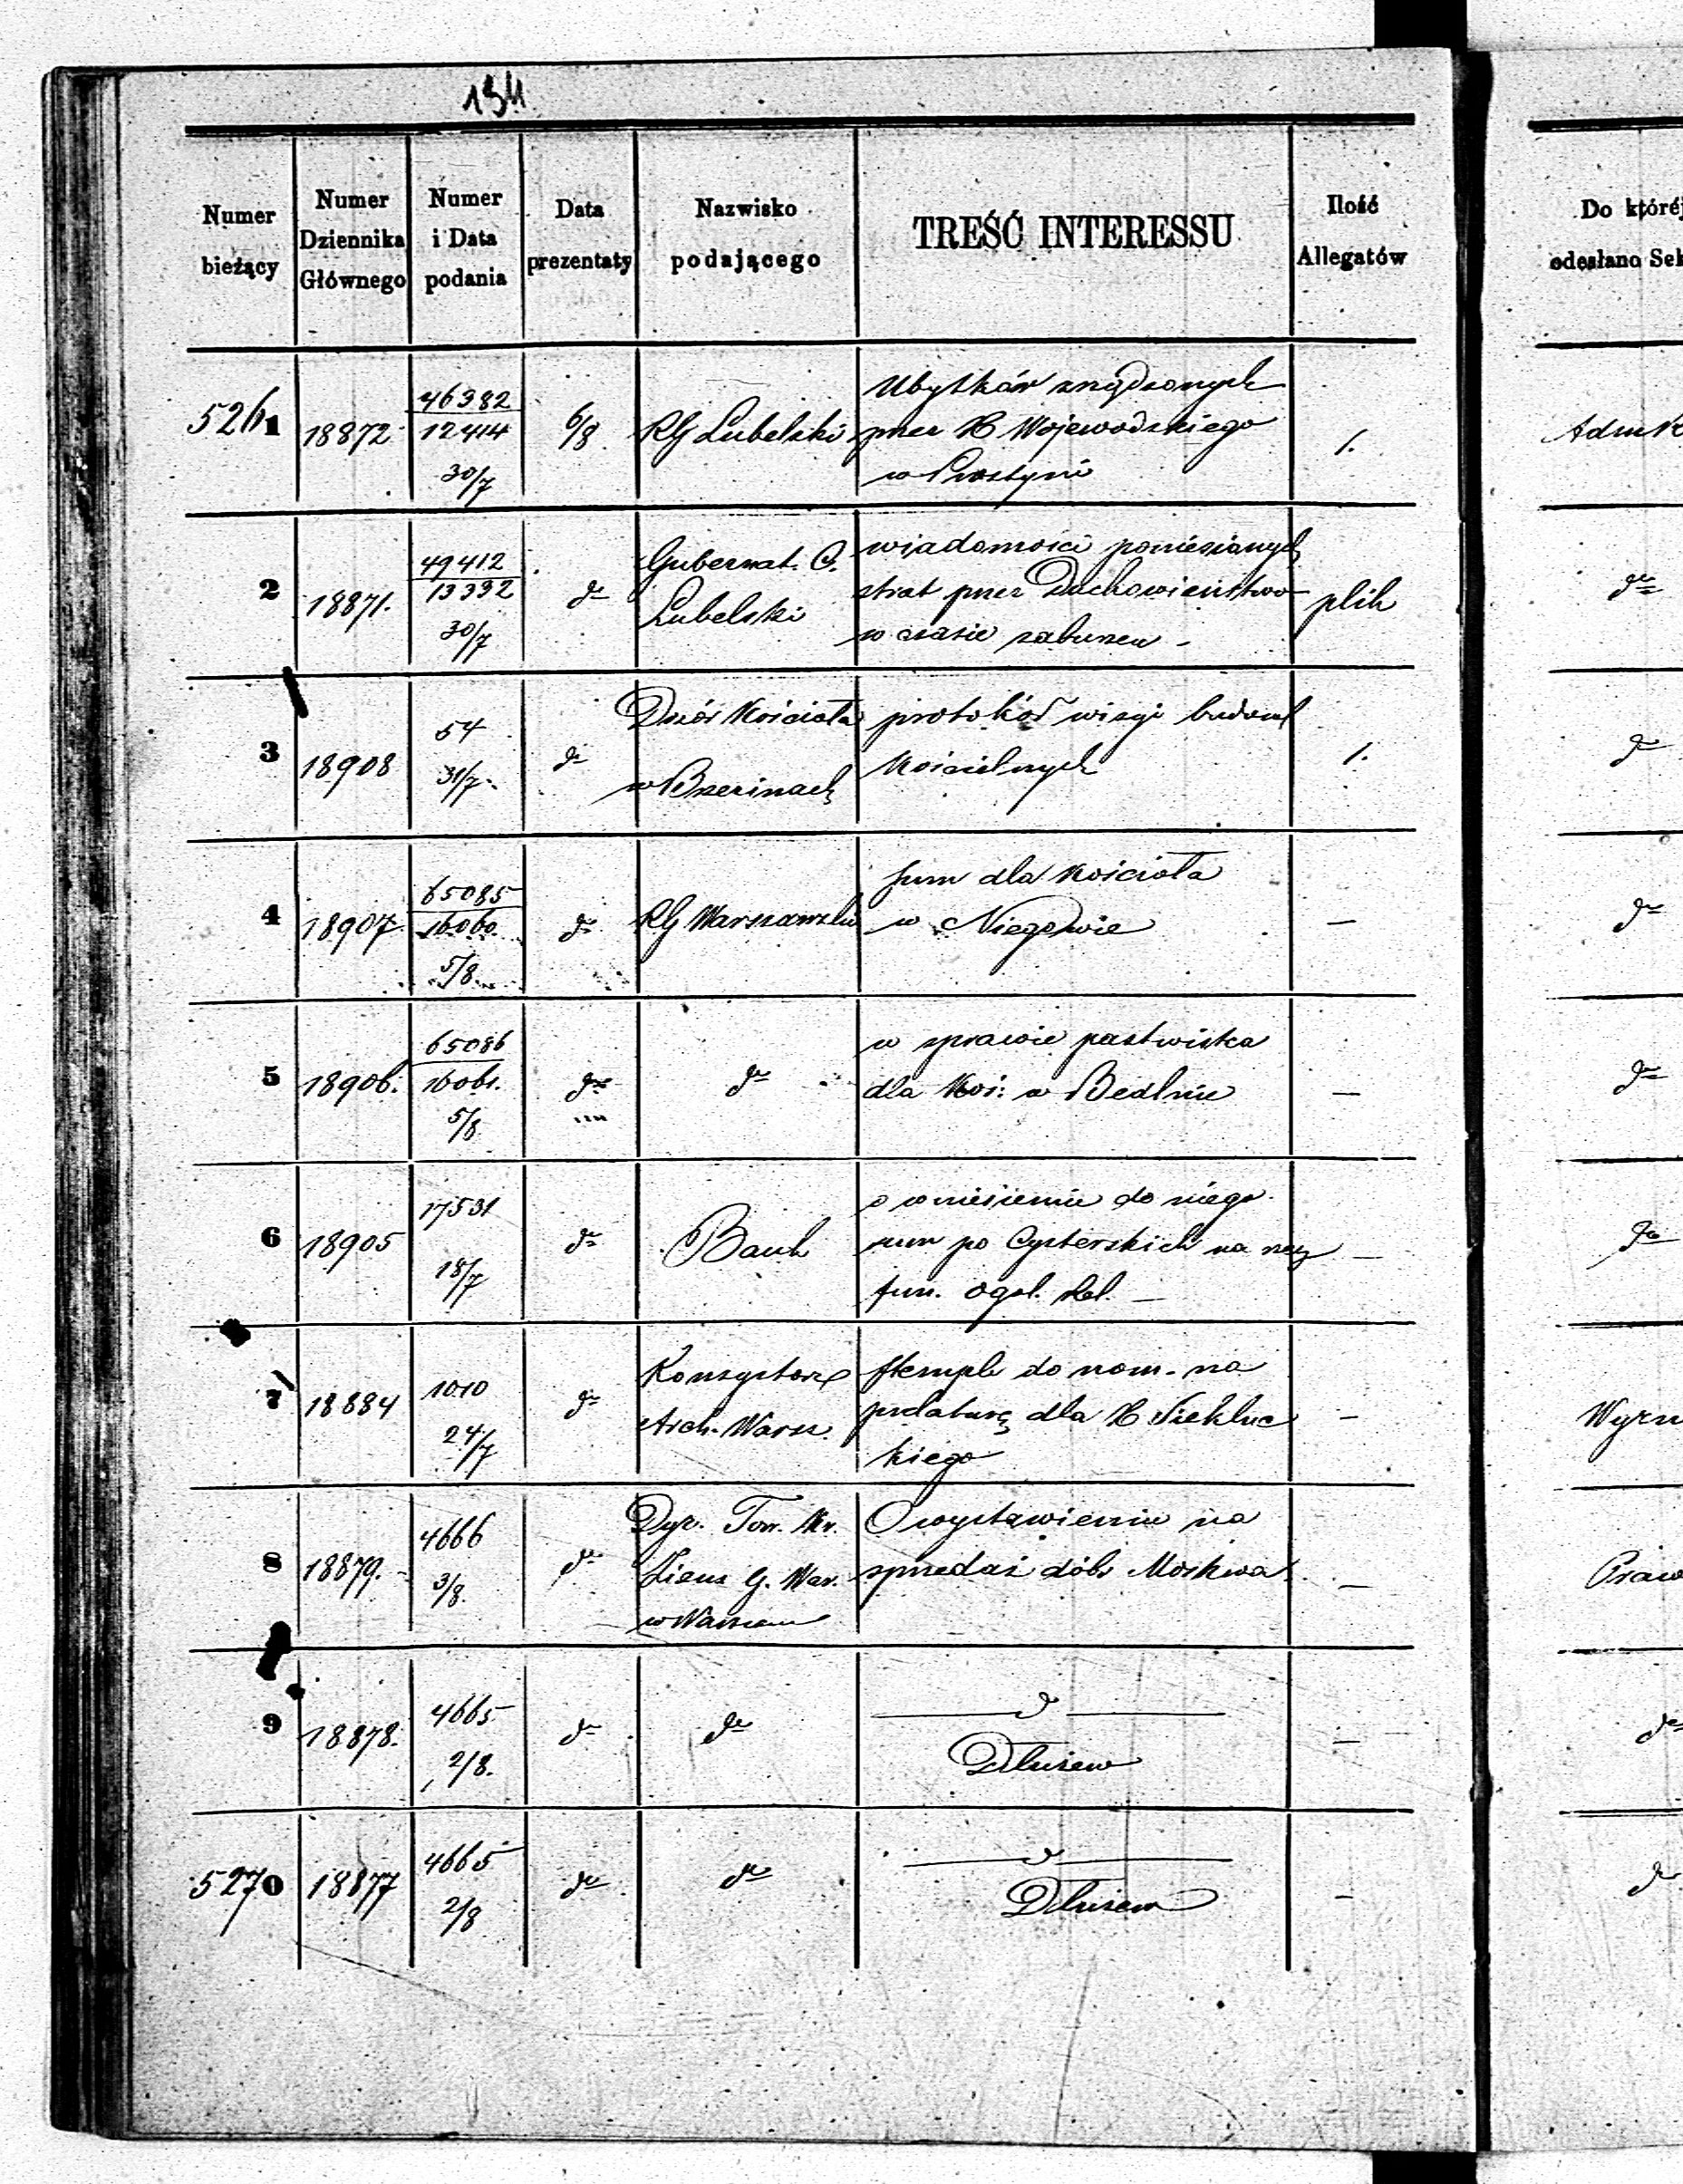 134
Numer bieżący
Numer Dziennika Głównego
Numer i Data podania
Data prezentaty
Nazwisko podającego
TREŚĆ INTERESSU
Ilość Allegatów
Do któréj odesłano Sek
5261
18872
46382
12414
30/7
6/8
RG Lubelski
Ubytków
przez X Wojewodzkiego
w Prostyni
1.
2
18871.
49412
13392
30/7
do
Gubernat. C.
Lubelski
wiadomości poniesionych
strat przez Duchowieństwo
w czasie zaburzeń -
plik
do
3
18908
54
31/7.
do
Dozór Kościoła
w Brzezinach
protokół wizyi budowl
Kościelnych
1.
do
4
18907.
65085
16060.
5/8.
do
RG Warszawski
sum dla Kościoła
w Niegowie
—
do
5
18906.
65086
16061.
5/8
do
do
w sprawie pastwiska
dla Koś: w Bedlnie
—
do
6
18905
17531
18/7
do
Bank
o wniesienie do niego
sum po Cysterskich na rzecz
fun. ogól. Rel. —
—
do
7
18884
1010
24/7
do
Konsystorz
Arch. Warsz.
stempla do nom. na
prelaturę dla X
kiego
—
8
18879.
4666
3/8.
do
Dyr. Tow. Kr.
Ziems G. War.
w Warszawie
O wystawieniu na
sprzedaż dóbr Moskwa
—
9
18878.
4665
2/8.
do
do
do
Dłużew
—
do
5270
18877
4665
2/8
do
do
do
Dłużew
—
do